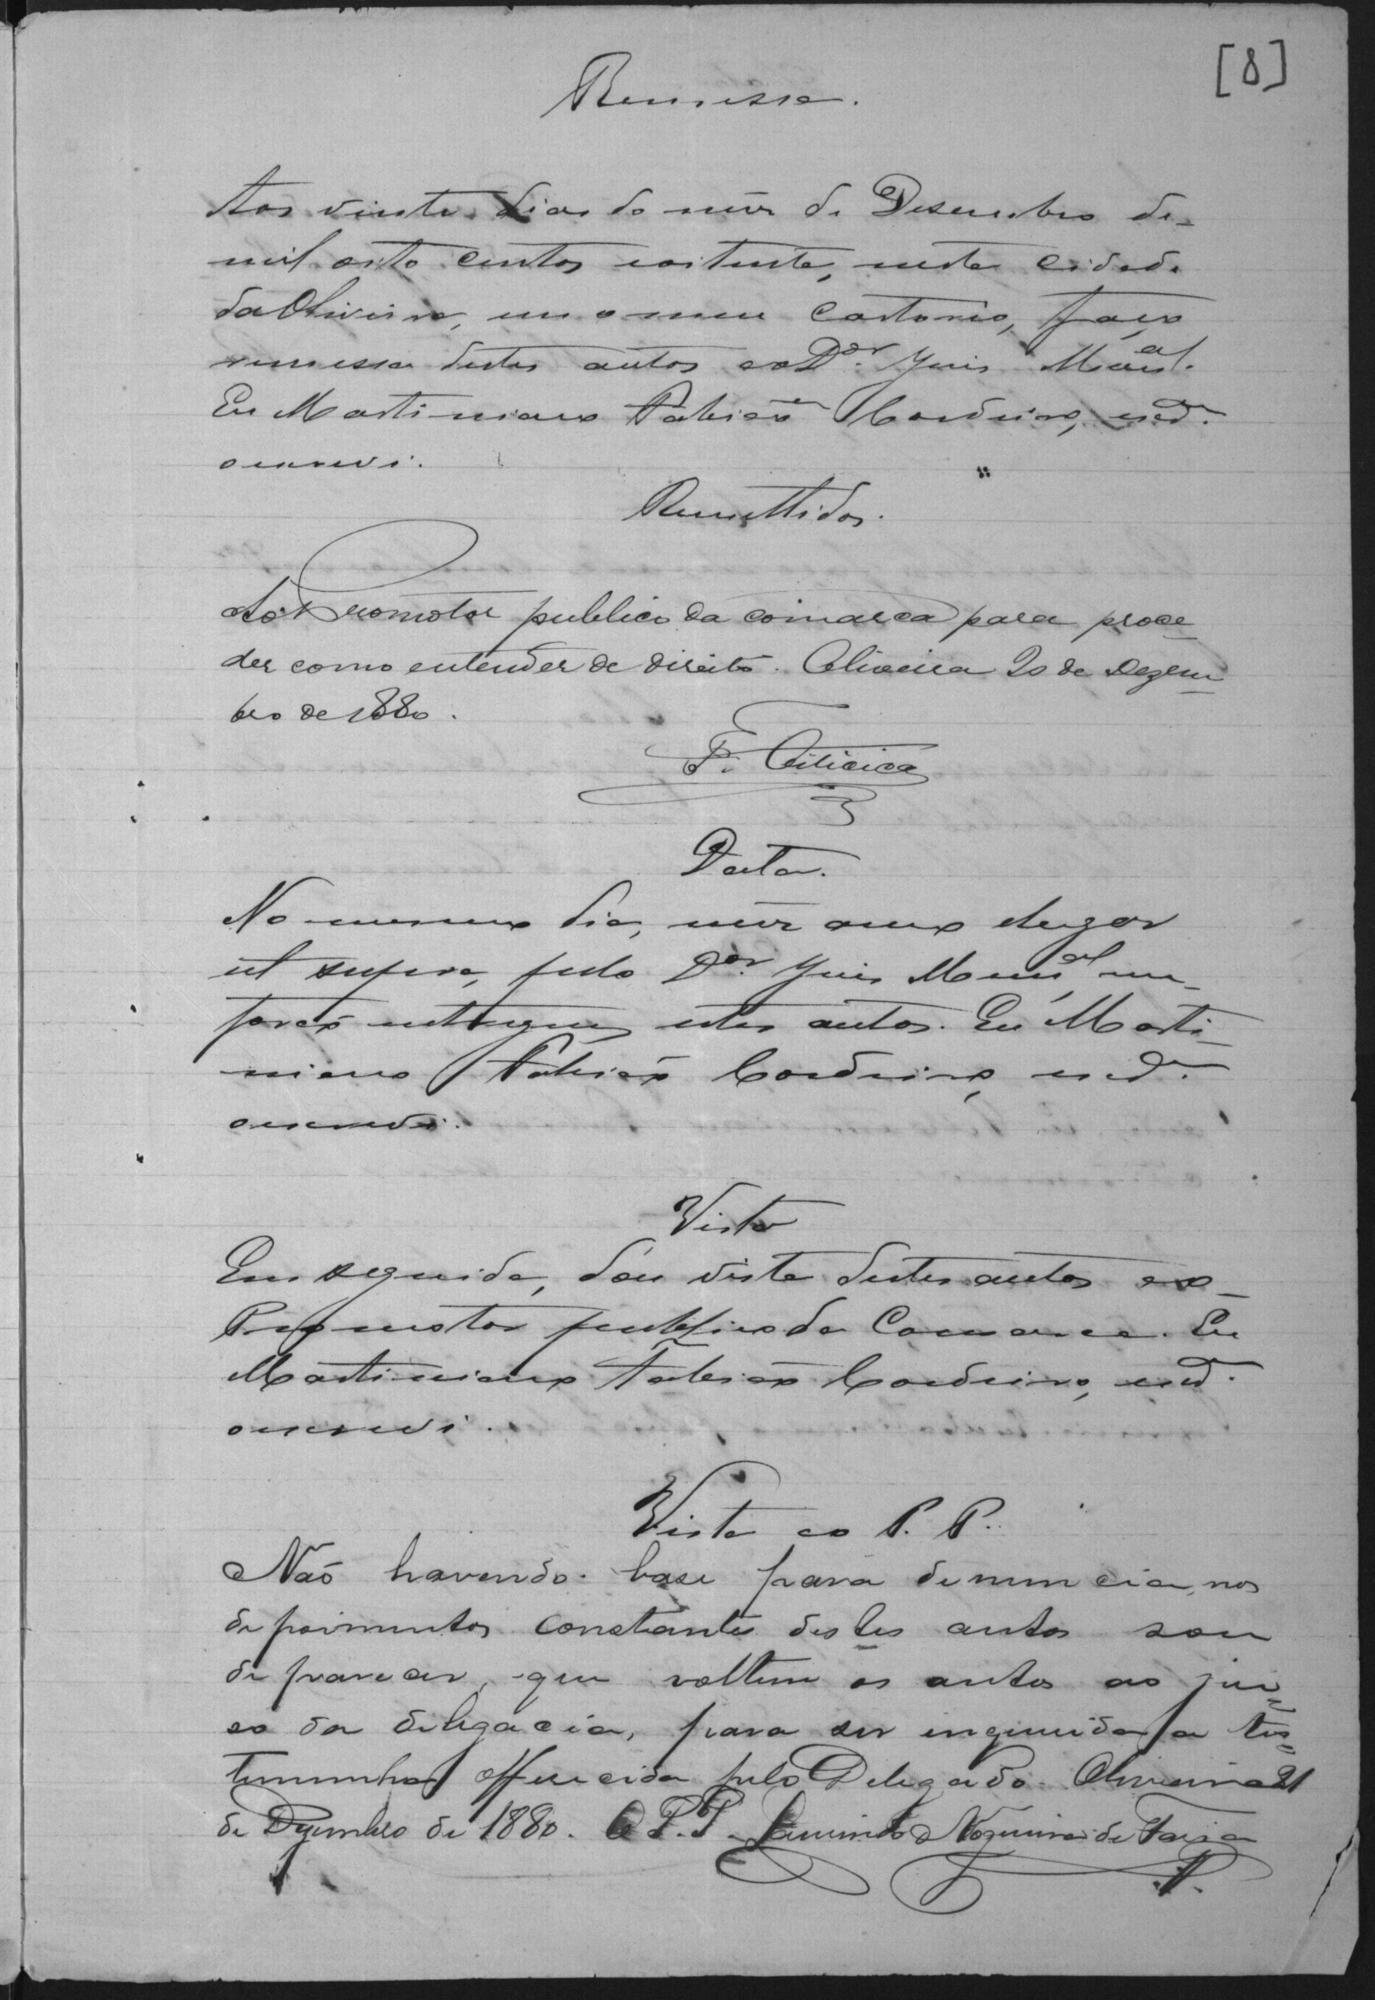 [8]
Remessa.
Aos vinte dias do mez de Desembro de
mil oito centos e oitenta, nesta cidade
da Oliveira, em o meu Cartorio, faço
remessa destes autos ao D.or Juis Mun.al
Eu Martiniano Fabião Cordeiro, escr.
o escrevi.
Remettidos.
Ao Promotor publico da comarca para proce-
der como entender de direito. Oliveira 20 de Dezem-
bro de 1880.
F.
Data.
No mesmo dia, mez anno e lugar
ut supra, pelo D.or Juis Mun.al me
forão entregues estes autos. Eu Marti-
niano Fabião Cordeiro, escr.
o escrevi.
Vista
Em seguida, dou vista destes autos ao
Promotor publico da Comarca. Eu
Martiniano Fabião Cordeiro, escr.
o escrevi.
Vista ao P. P.
Não havendo base para denuncia, nos
depoimentos constantes destes autos sou
de parecer, que voltem os autos ao jui-
so da delegacia, para ser inquirida a tes-
temunha offerecida pelo Delegado. Oliveira 21
de Dezembro de 1880. O P. P. Nogueira de Faria